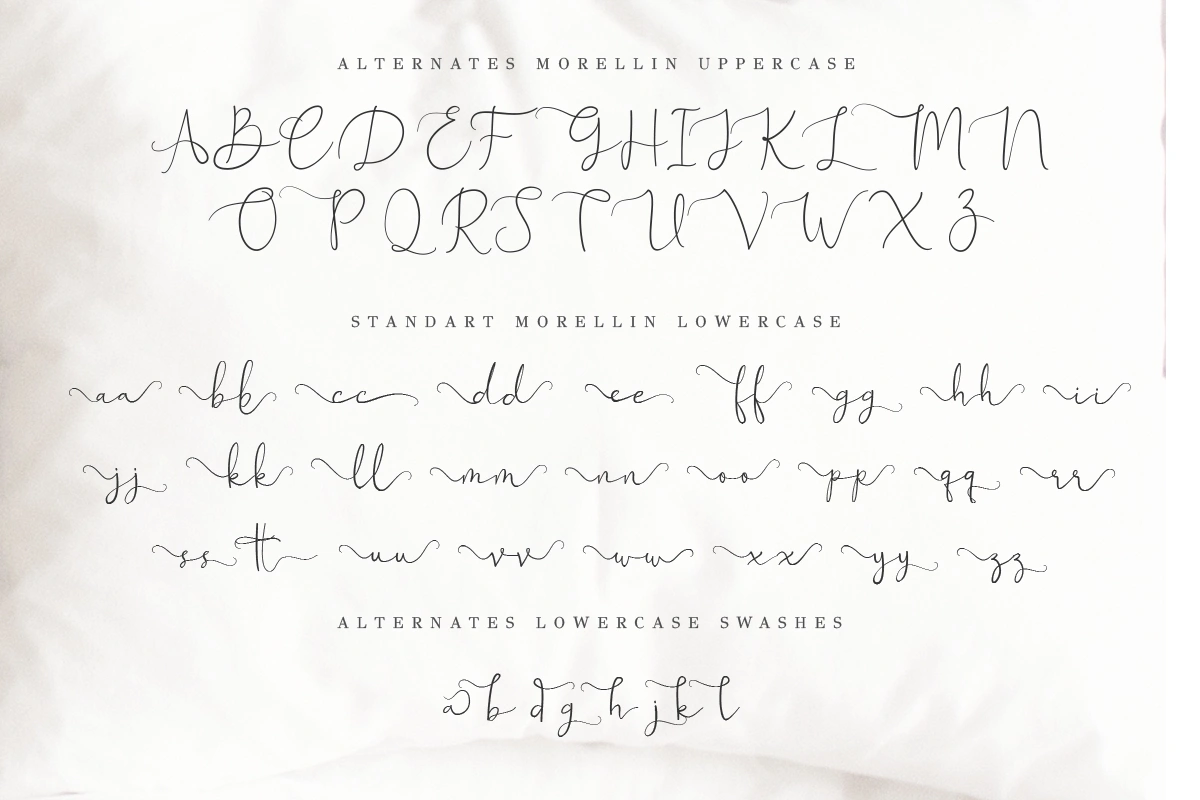 ALTERNATES MORELLIN UPPERCASE
ABCDEFGHIJKLMN
OPQRSTUVWXZ
STANDART MORELLIN LOWERCASE
aa bb cc dd ee ff gg hh ii
jj kk ll mm nn oo pp qq rr
ss tt uu vv ww xx yy zz
ALTERNATES LOWERCASE SWASHES
a b d g h j k l